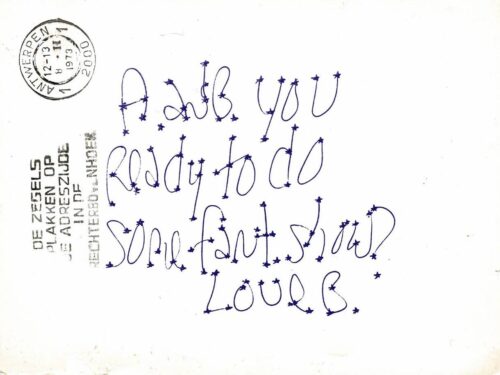 ANTWERPEN
12-13
8 - II
1973
1 2000 1
DE ZEGELS
PLAKKEN OP
DE ADRESZIJDE
IN DE
RECHTERBOVENHOEK
A. and B. you
Ready to do
some fant. show?
Love B.